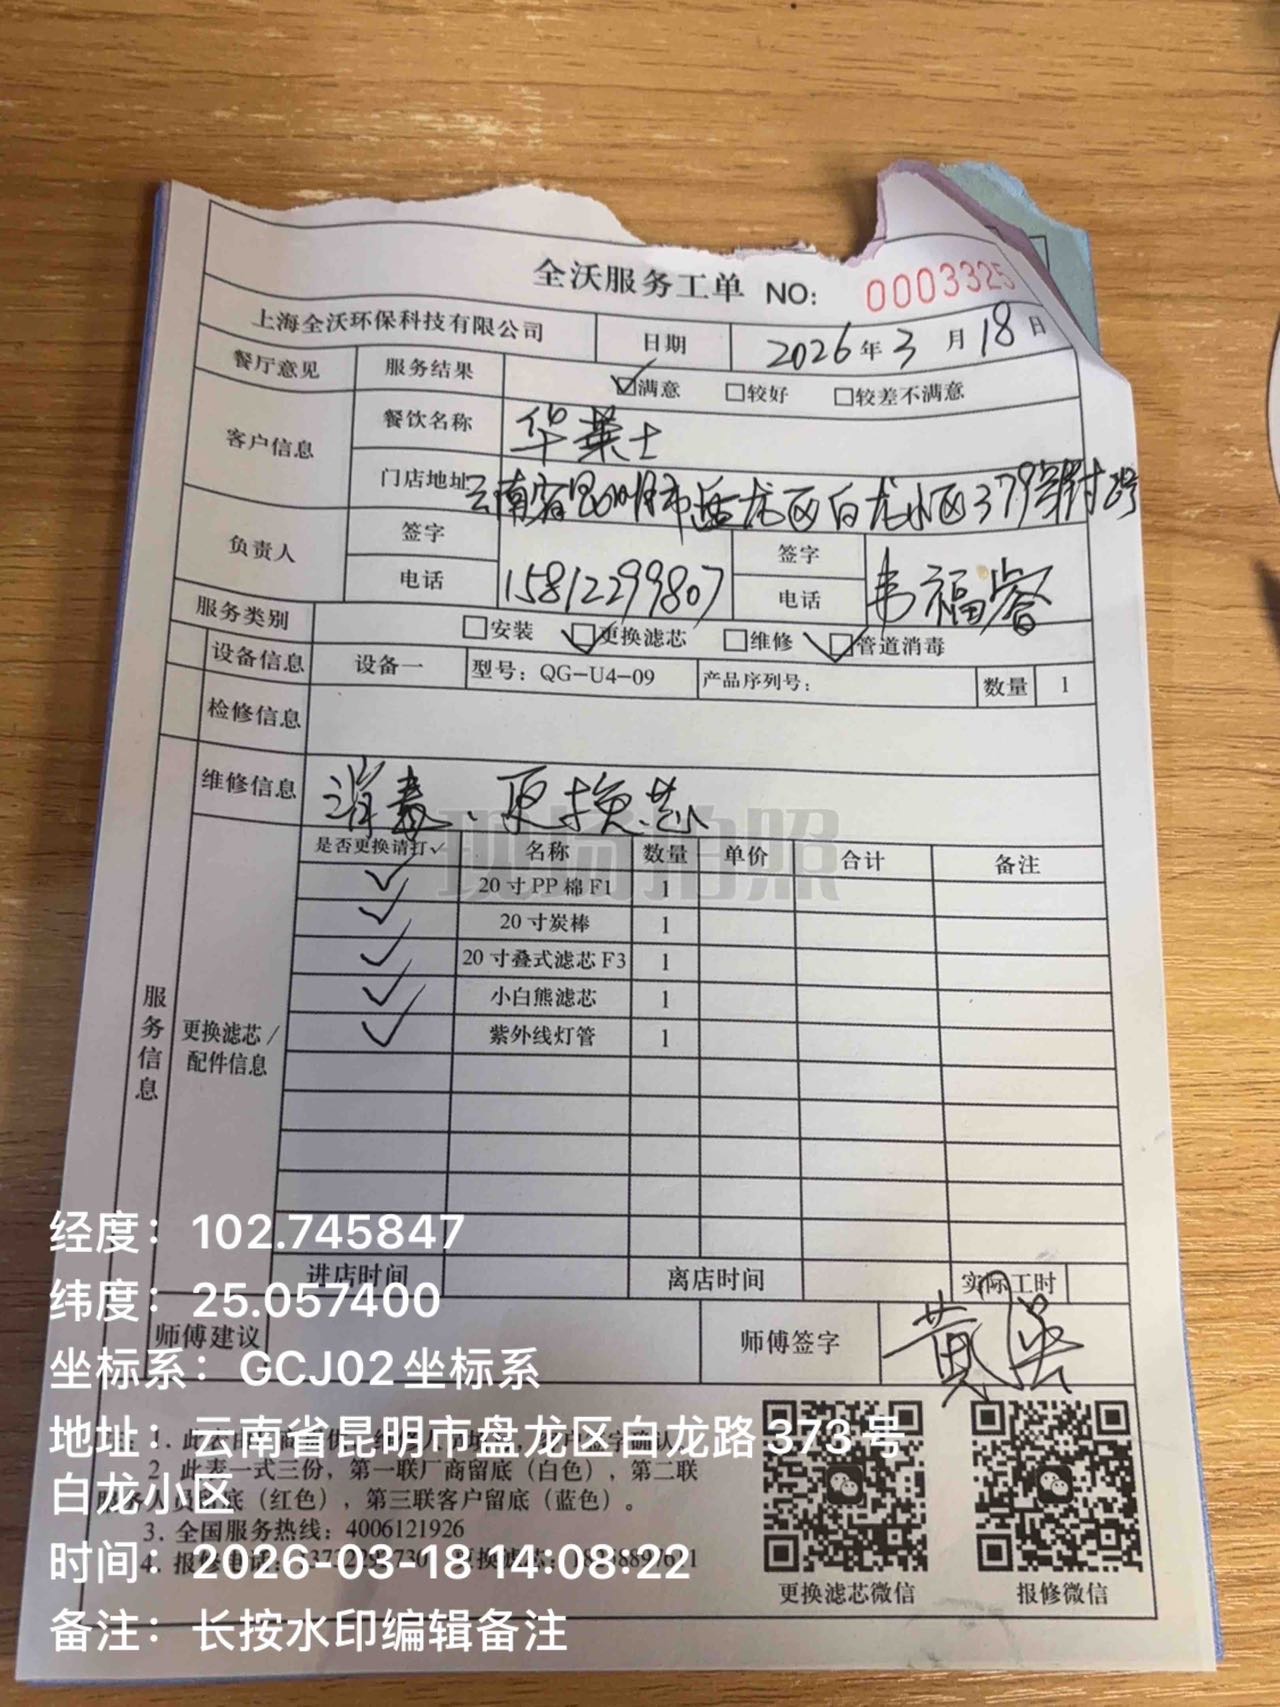 全沃服务工单 NO: 0003325
上海全沃环保科技有限公司 日期 2026年3月18日
餐厅意见 服务结果 ☑满意 □较好 □较差不满意
客户信息 餐饮名称 华莱士
门店地址 云南省昆明市盘龙区白龙小区379号附2号
负责人 签字 签字
电话 15812299807 电话 韦福睿
服务类别 □安装 ☑更换滤芯 □维修 ☑管道消毒
设备信息 设备一 型号: QG-U4-09 产品序列号: 数量 1
检修信息
维修信息 消毒、更换芯
现场拍照
是否更换请打✓ 名称 数量 单价 合计 备注
✓ 20寸PP棉F1 1
✓ 20寸炭棒 1
✓ 20寸叠式滤芯F3 1
✓ 小白熊滤芯 1
✓ 紫外线灯管 1
服务信息
更换滤芯/
配件信息
进店时间 离店时间 实际工时
师傅建议 师傅签字 黄
2. 此表一式三份,第一联厂商留底(白色),第二联
服务人员留底(红色),第三联客户留底(蓝色)。
3. 全国服务热线: 4006121926
更换滤芯微信 报修微信
经度: 102.745847
纬度: 25.057400
坐标系: GCJ02坐标系
地址: 云南省昆明市盘龙区白龙路373号
白龙小区
时间: 2026-03-18 14:08:22
备注: 长按水印编辑备注